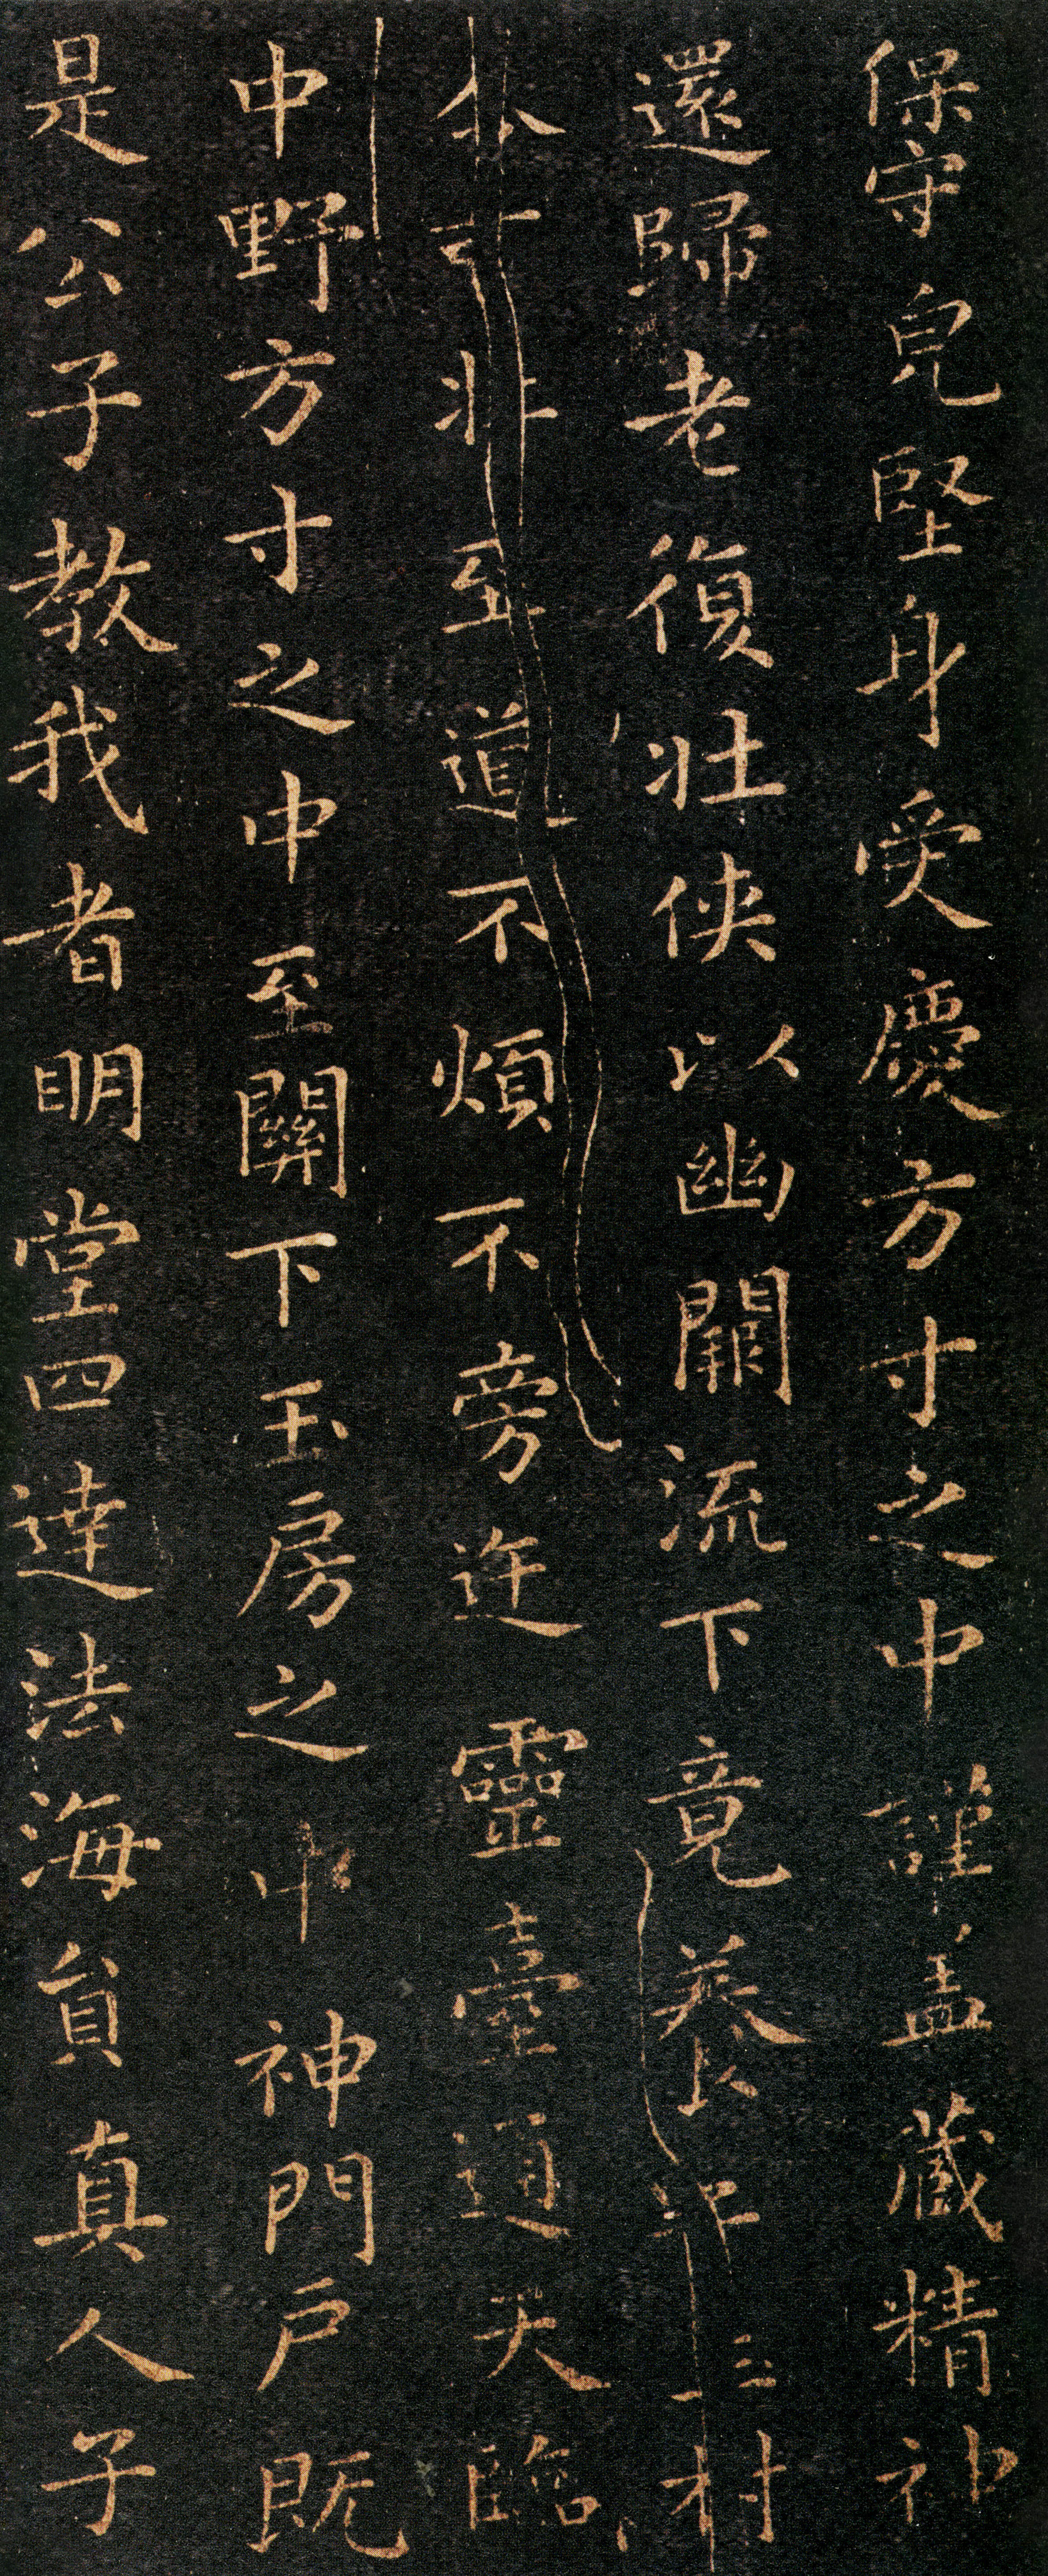 保守皃堅身受慶方寸之中謹蓋藏精神
還歸老復壯俠以幽闕流下竟養
至道不煩不旁迕靈臺通天臨
中野方寸之中至關下玉房之中神門戶既
是公子教我者明堂四達法海員真人子